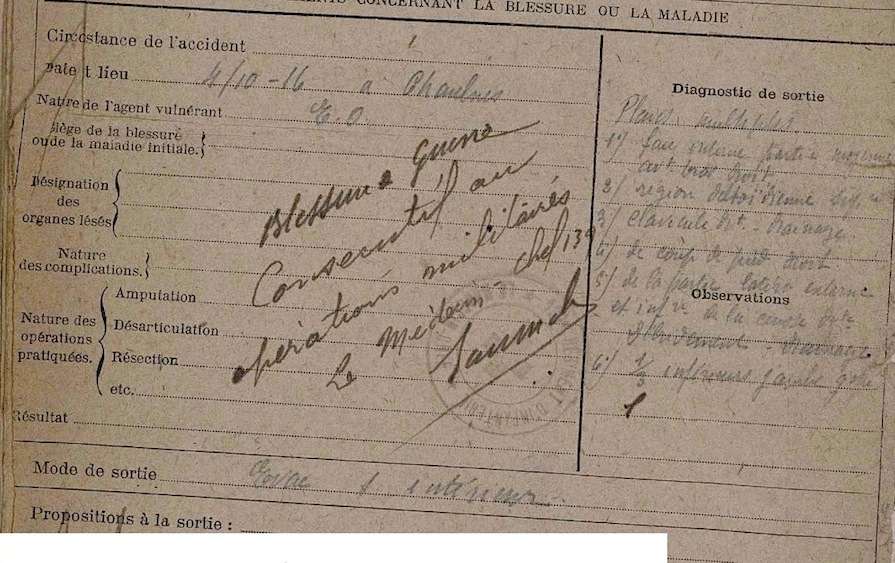 CONCERNANT LA BLESSURE OU LA MALADIE
Circostance de l'accident
Date t lieu 4/10-16 a Chaulnes
Nature de l'agent vulnérant E.O
Siège de la blessure
ou de la maladie initiale.
Désignation
des
organes lésés
Nature
des complications.
Nature des
opérations
pratiquées.
Amputation
Désarticulation
Résection
etc.
Résultat
Blessure Guerre
Consécutif au
opérations militaires
Le Médecin-Chef 139
Diagnostic de sortie
Plaies multiples
1°/ face interne partie moyenne
avt bras droit
2/ région deltoïdienne
3/ clavicule dte - drainage.
4/ de coup de pied droit
5/ de la partie latero externe
Observations
et infre de la cuisse dte
Débridement - drainage
6°/ 1/3 inférieur jambe gche
Mode de sortie Evac intérieur
Propositions à la sortie :